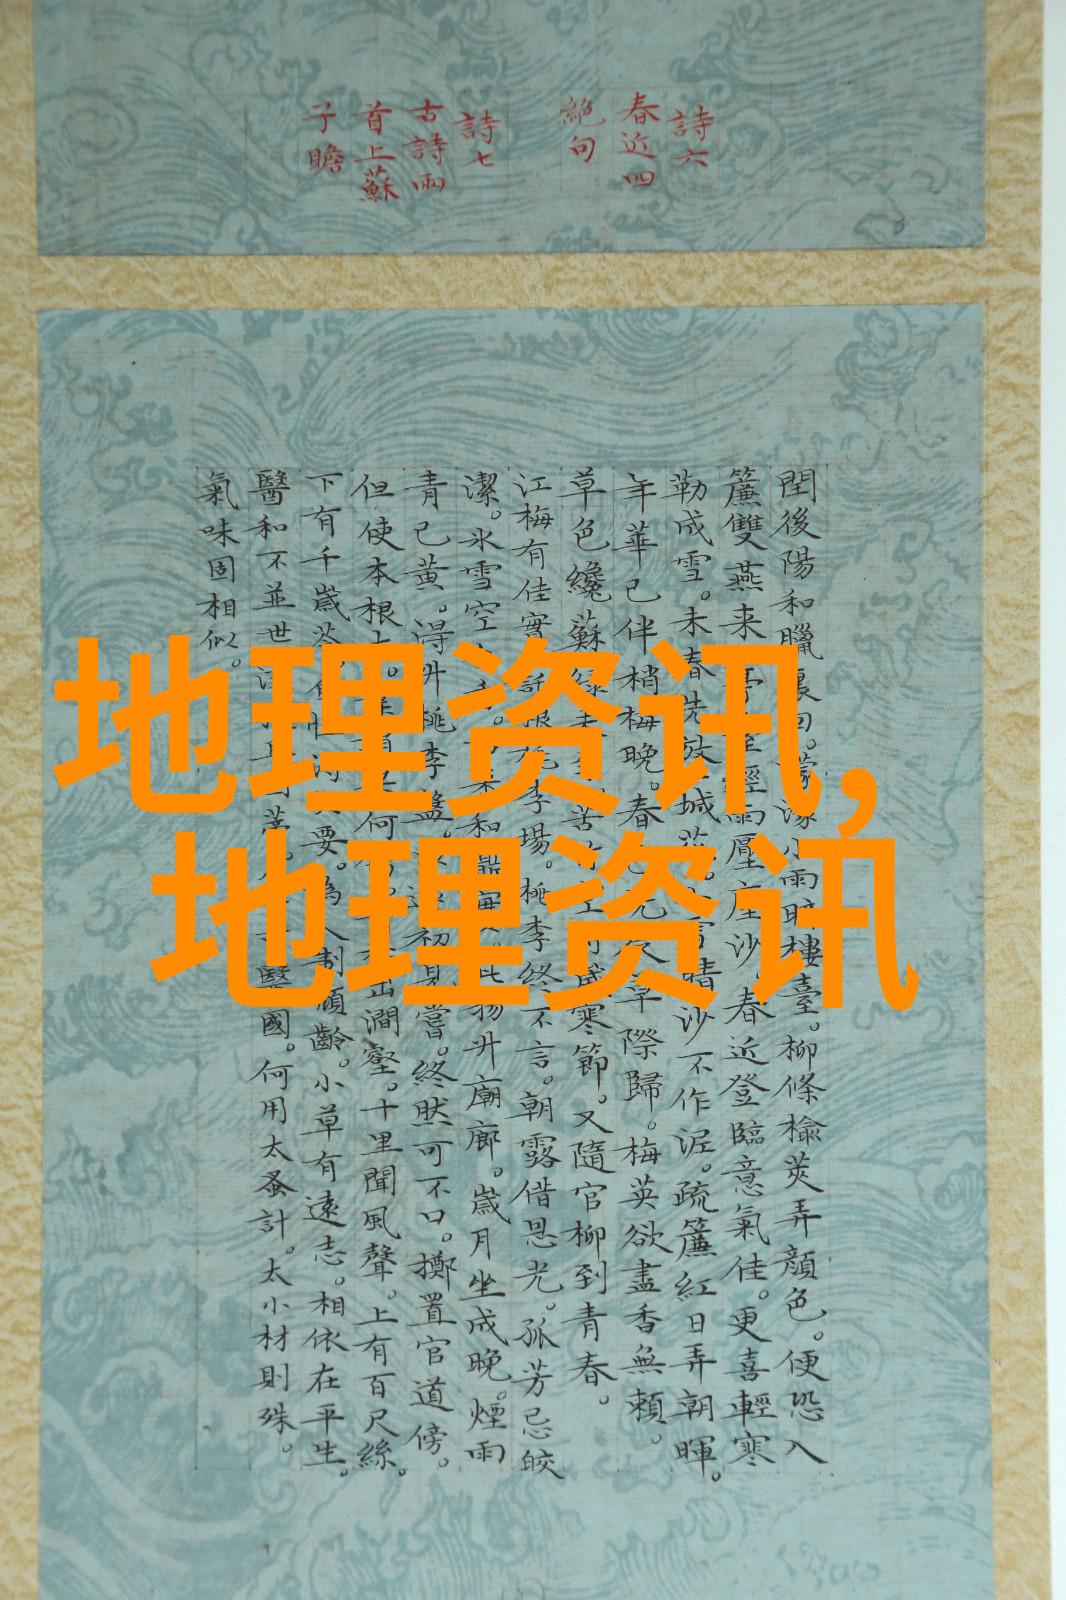 詩六
春近四
絕句
詩七
古詩兩
首上蘇
子瞻
閏後陽和臘裏回。濛濛小雨暗樓臺。柳條榆莢弄顏色。便恐入
簾雙燕来 輕雨壓塵沙 春近登臨意氣佳。更喜輕寒
勒成雪。未春先放 城花。 雪晴沙不作泥。疏簾紅日弄朝暉。
年華已伴梢梅晚。春 草際歸。梅英欲盡香無賴。
草色纔蘇 苦 寒節。又隨官柳到青春。
江梅有佳實 託根桃李場。桃李終不言。朝露借恩光。孤芳忌皎
潔。冰雪空 和鼎 此物升廟廊。歲月坐成晚。煙雨
青已黃。得升桃李盤 初見嘗。終然可不口。擲置官道傍。
但使本根 何 出澗壑。十里聞風聲。上有百尺絲。
下有千歲苓 要。為人制頹齡。小草有遠志。相依在平生。
醫和不並世 醫國。何用太蚤計。大小材則殊。
氣味固相似。
地理资讯,
地理资讯